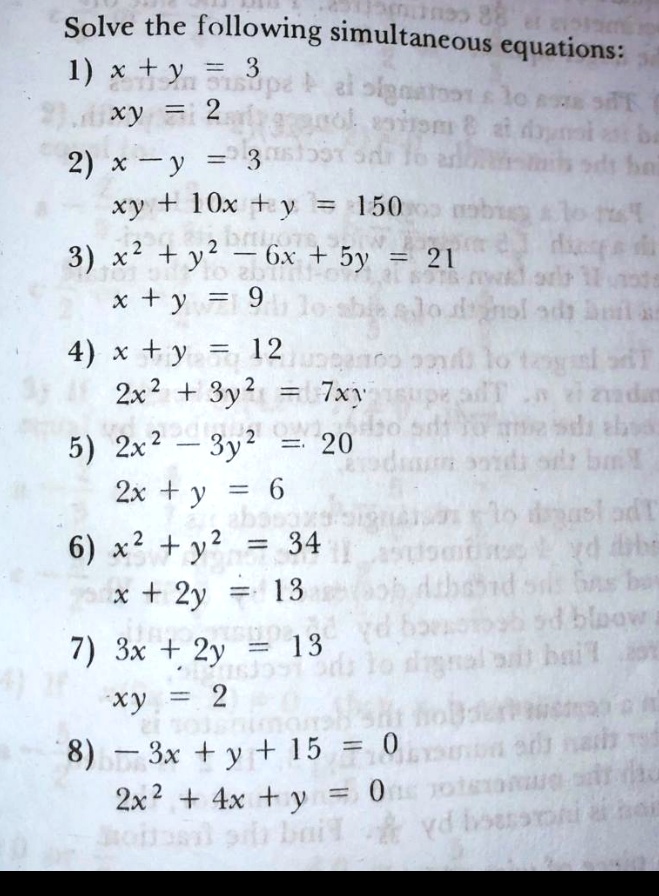 Solve the following simultaneous equations:
1) x + y = 3
xy = 2
2) x − y = 3
xy + 10x + y = 150
3) x² + y² − 6x + 5y = 21
x + y = 9
4) x + y = 12
2x² + 3y² = 7xy
5) 2x² − 3y² = 20
2x + y = 6
6) x² + y² = 34
x + 2y = 13
7) 3x + 2y = 13
xy = 2
8) − 3x + y + 15 = 0
2x² + 4x + y = 0